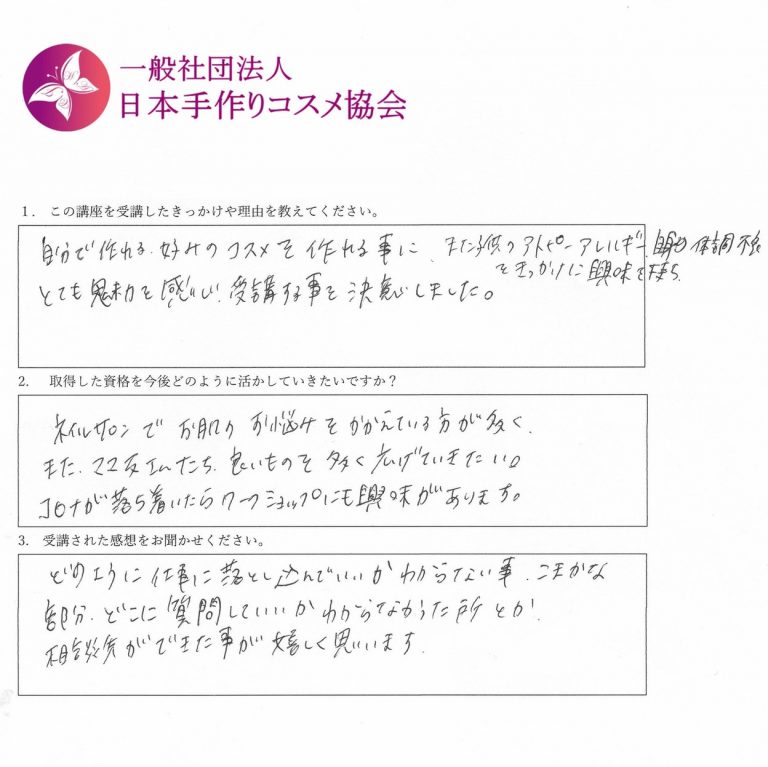 一般社団法人
日本手作りコスメ協会
1. この講座を受講したきっかけや理由を教えてください。
自分で作れる、好みのコスメを作れる事に、また子供のアトピーアレルギー、自身の体調不良
をきっかけに興味を持ち、
とても魅力を感じ、受講する事を決意しました。
2. 取得した資格を今後どのように活かしていきたいですか？
ネイルサロンでお肌のお悩みをかかえている方が多く、
また、ママ友さんたち、良いものを多く広げていきたい。
コロナが落ち着いたらワークショップにも興味があります。
3. 受講された感想をお聞かせください。
どのように仕事に落とし込んでいいかわからない事、こまかな
部分、どこに質問していいかわからなかった所とか、
相談等ができた事が嬉しく思います。